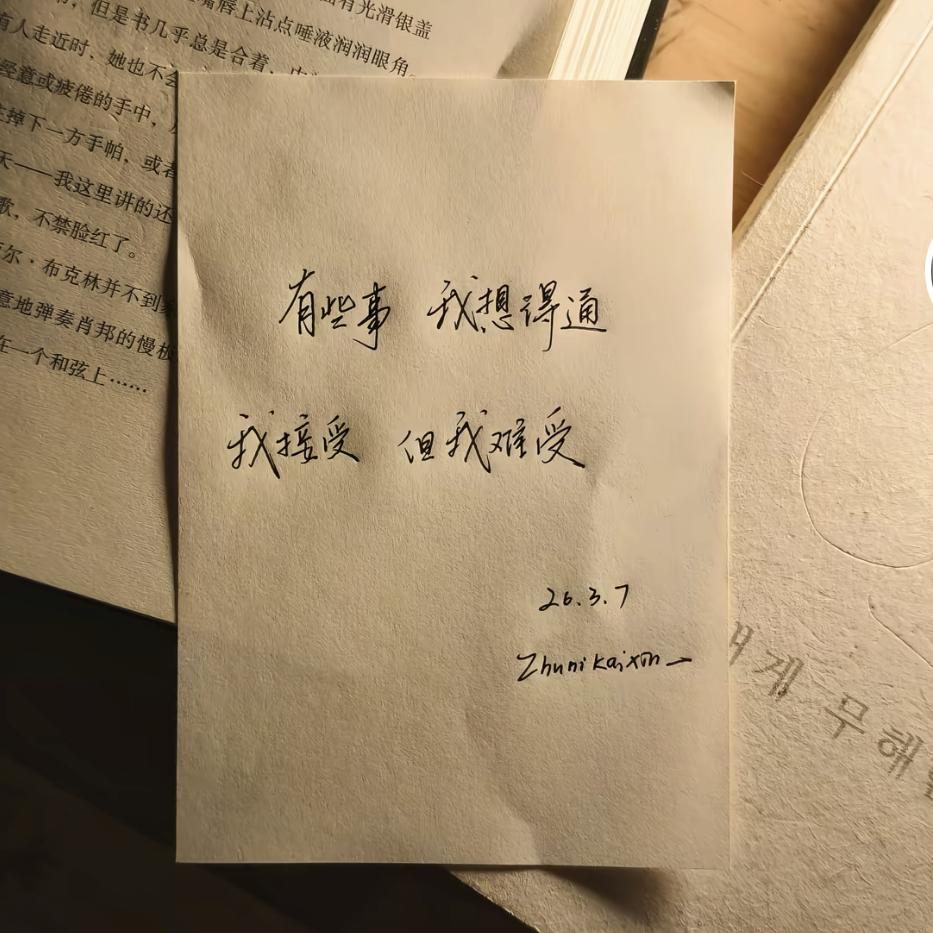 但是书几乎总是合着，
嘴唇上沾点唾液润润眼角。
有光滑银盖
有人走近时，她也不会
经意或疲倦的手中，
掉下一方手帕，或者
天——我这里讲的还
歌，不禁脸红了。
尔·布克林并不到
意地弹奏肖邦的慢板
在一个和弦上……
有些事 我想得通
我接受 但我难受
26.3.7
Zhunikaixin
게 무해